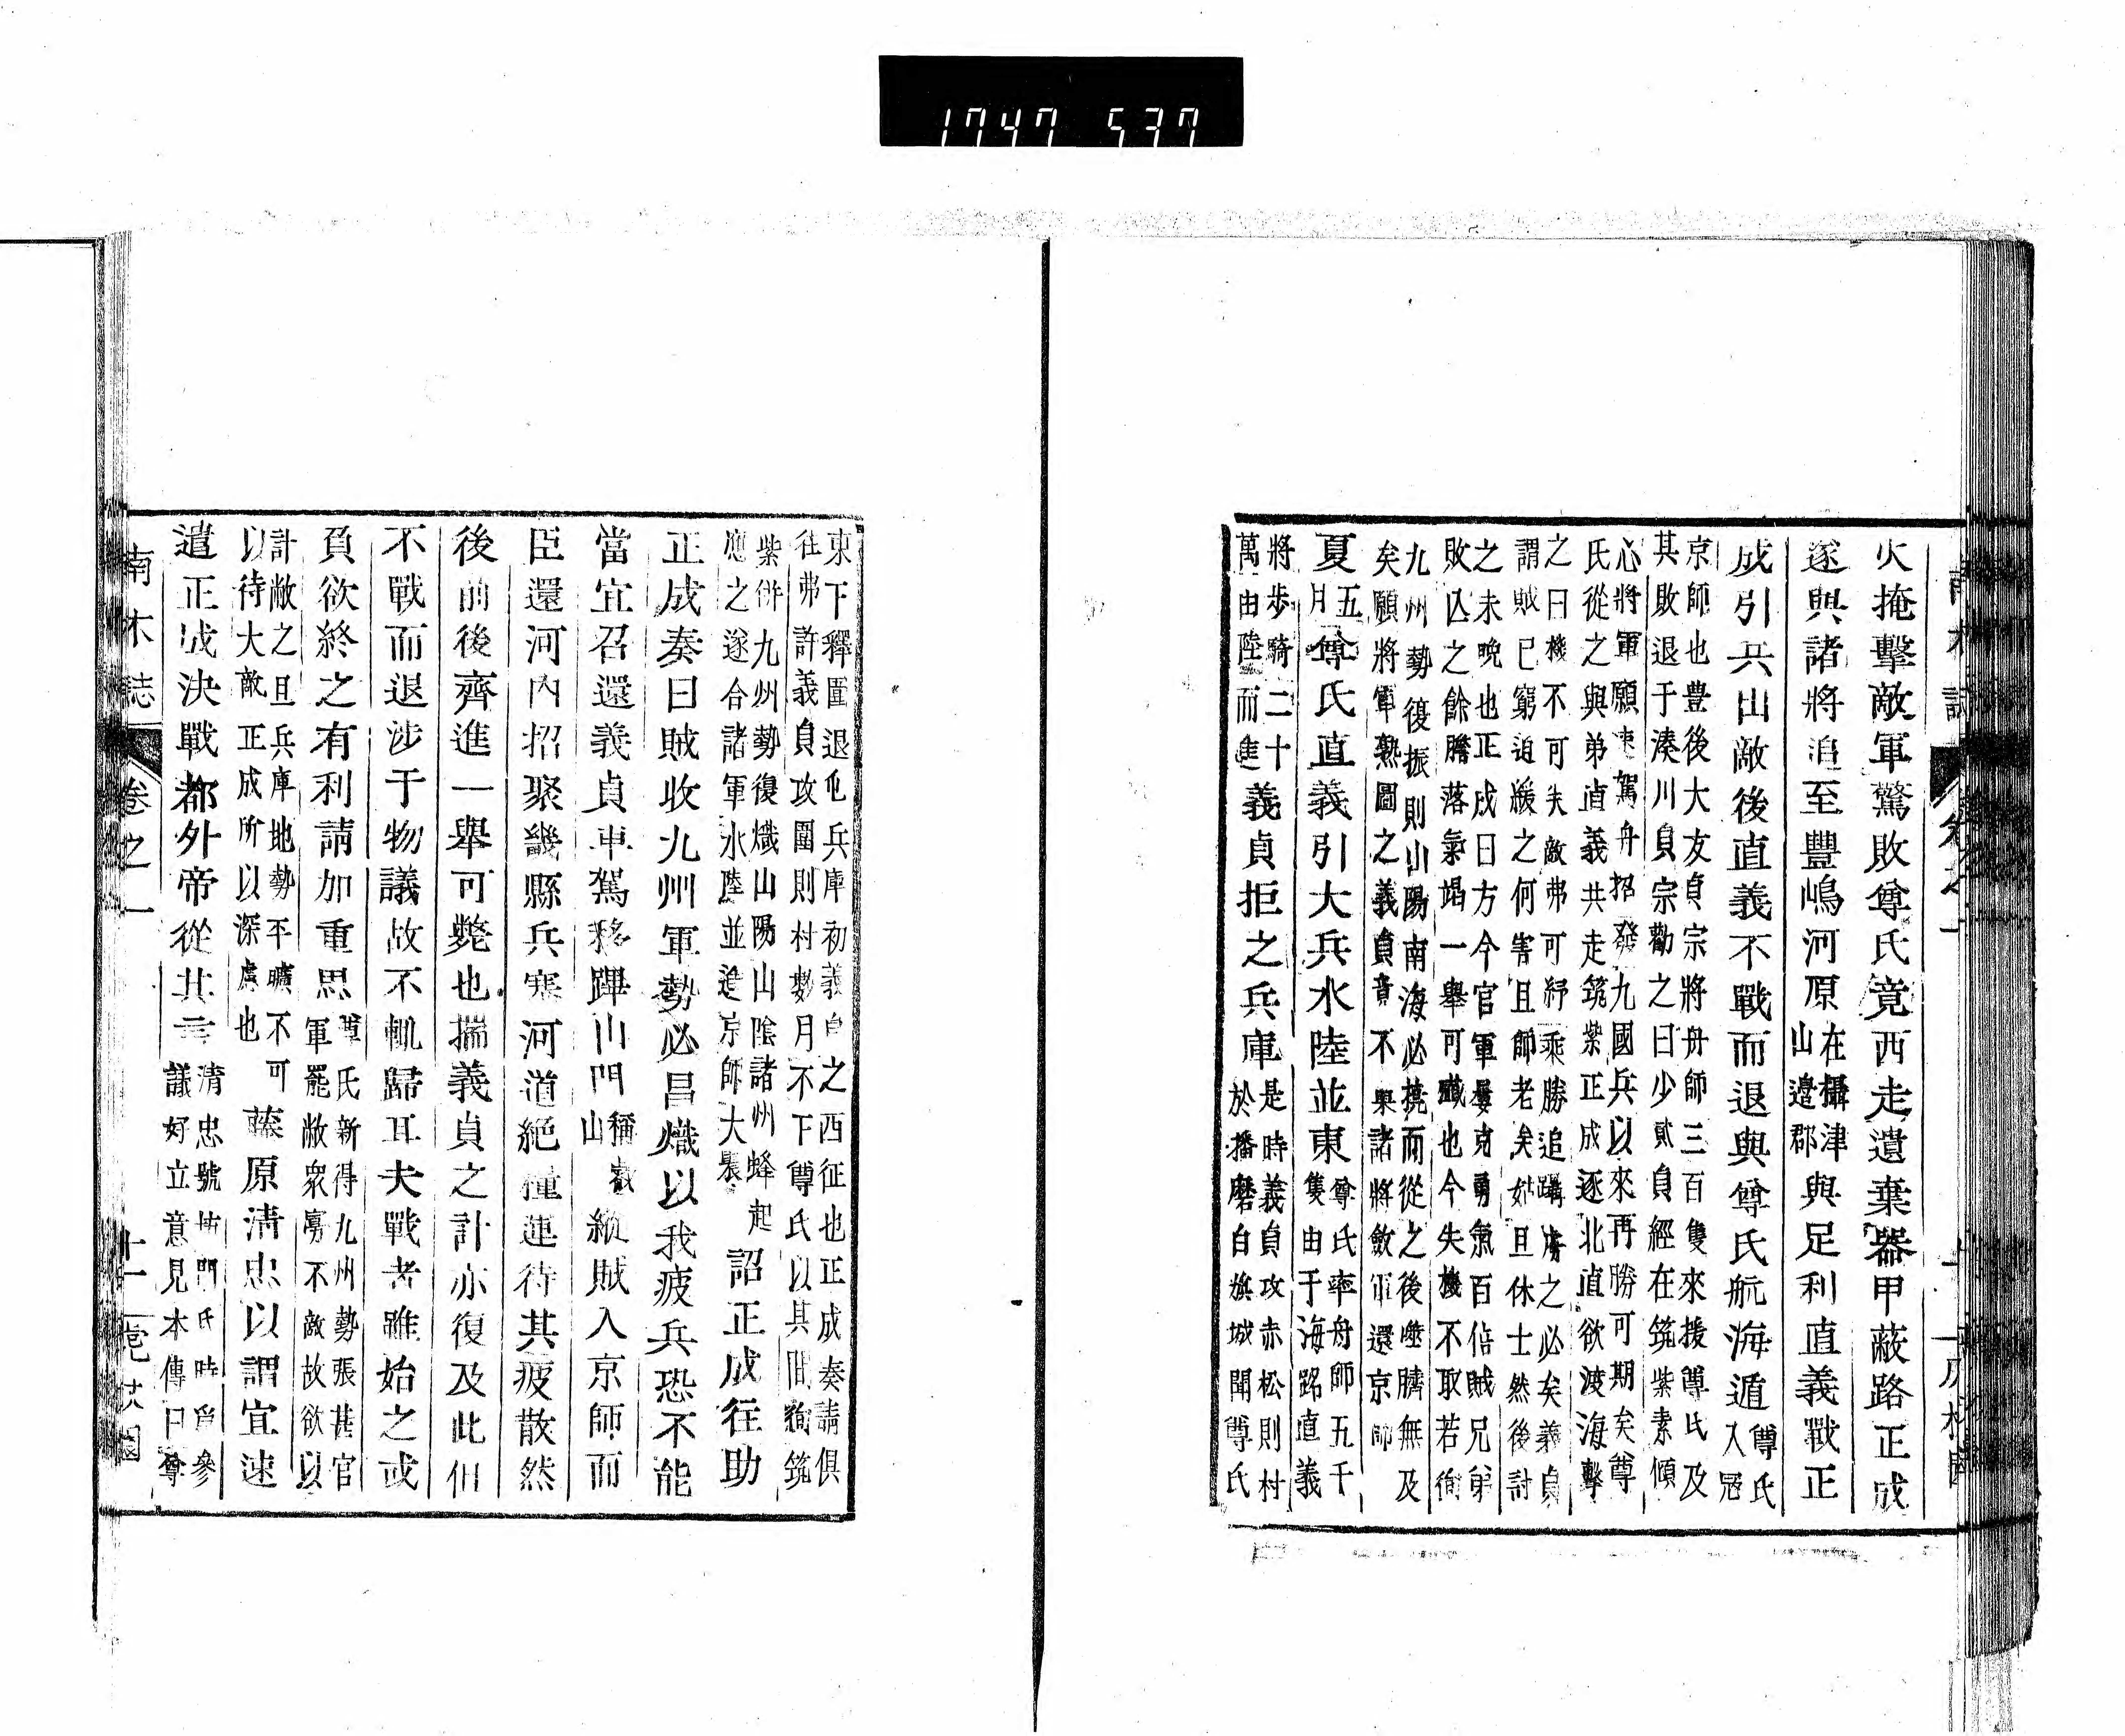 1747 537
火掩擊敵軍驚敗尊氏竟西走遺棄器甲蔽路正成
遂與諸將追至豐嶋河原在攝津山邊郡與足利直義戰正
成引兵出敵後直義不戰而退與尊氏航海遁尊氏入寇
京師也豊後大友貞宗將舟師三百隻來援尊氏及
其敗退于湊川貞宗勸之曰少貳貞經在筑紫素傾
心將軍願速駕舟招發九國兵以來再勝可期矣尊
氏從之與弟直義共走筑紫正成逐北直欲渡海擊
之曰機不可失敵弗可紓乘勝追躡虜之必矣義貞
謂賊已窮追緩之何害且師老矣姑且休士然後討
之未晩也正成曰方今官軍屢克勇氣百倍賊兄弟
敗亡之餘膽落氣竭一舉可殲也今失機不取若徇
九州勢復振則山陽南海必撓而從之後噬臍無及
矣願將軍熟圖之義貞音不果諸將斂軍還京師
夏五月尊氏直義引大兵水陸並東尊氏率舟師五千
隻由于海路直義
將歩騎二十
萬由陸而進義貞拒之兵庫是時義貞攻赤松則村
於播磨白旗城聞尊氏
東下釋圍退屯兵庫初義貞之西征也正成奏請俱
往弗許義貞攻圍則村數月不下尊氏以其間徇筑
紫併九州勢復熾山陽山陰諸州蜂起
應之遂合諸軍水陸並進京師大暴詔正成往助
正成奏曰賊收九州軍勢必昌熾以我疲兵恐不能
當宜召還義貞車駕移蹕山門稱叡山縱賊入京師而
臣還河内招聚畿縣兵塞河道絶糧運待其疲散然
後前後齊進一舉可斃也揣義貞之計亦復及此但
不戰而退涉于物議故不輒歸耳夫戰者雖始之或
負欲終之有利請加重思尊氏新得九州勢張甚官
軍罷敝衆寡不敵故欲以
計敝之且兵庫地勢平曠不可
以待大敵正成所以深慮也藤原清忠以謂宜速
遣正成決戰都外帝從其言清忠號坊門氏時爲參
議好立意見本傳曰尊
南木誌 卷之一 十一